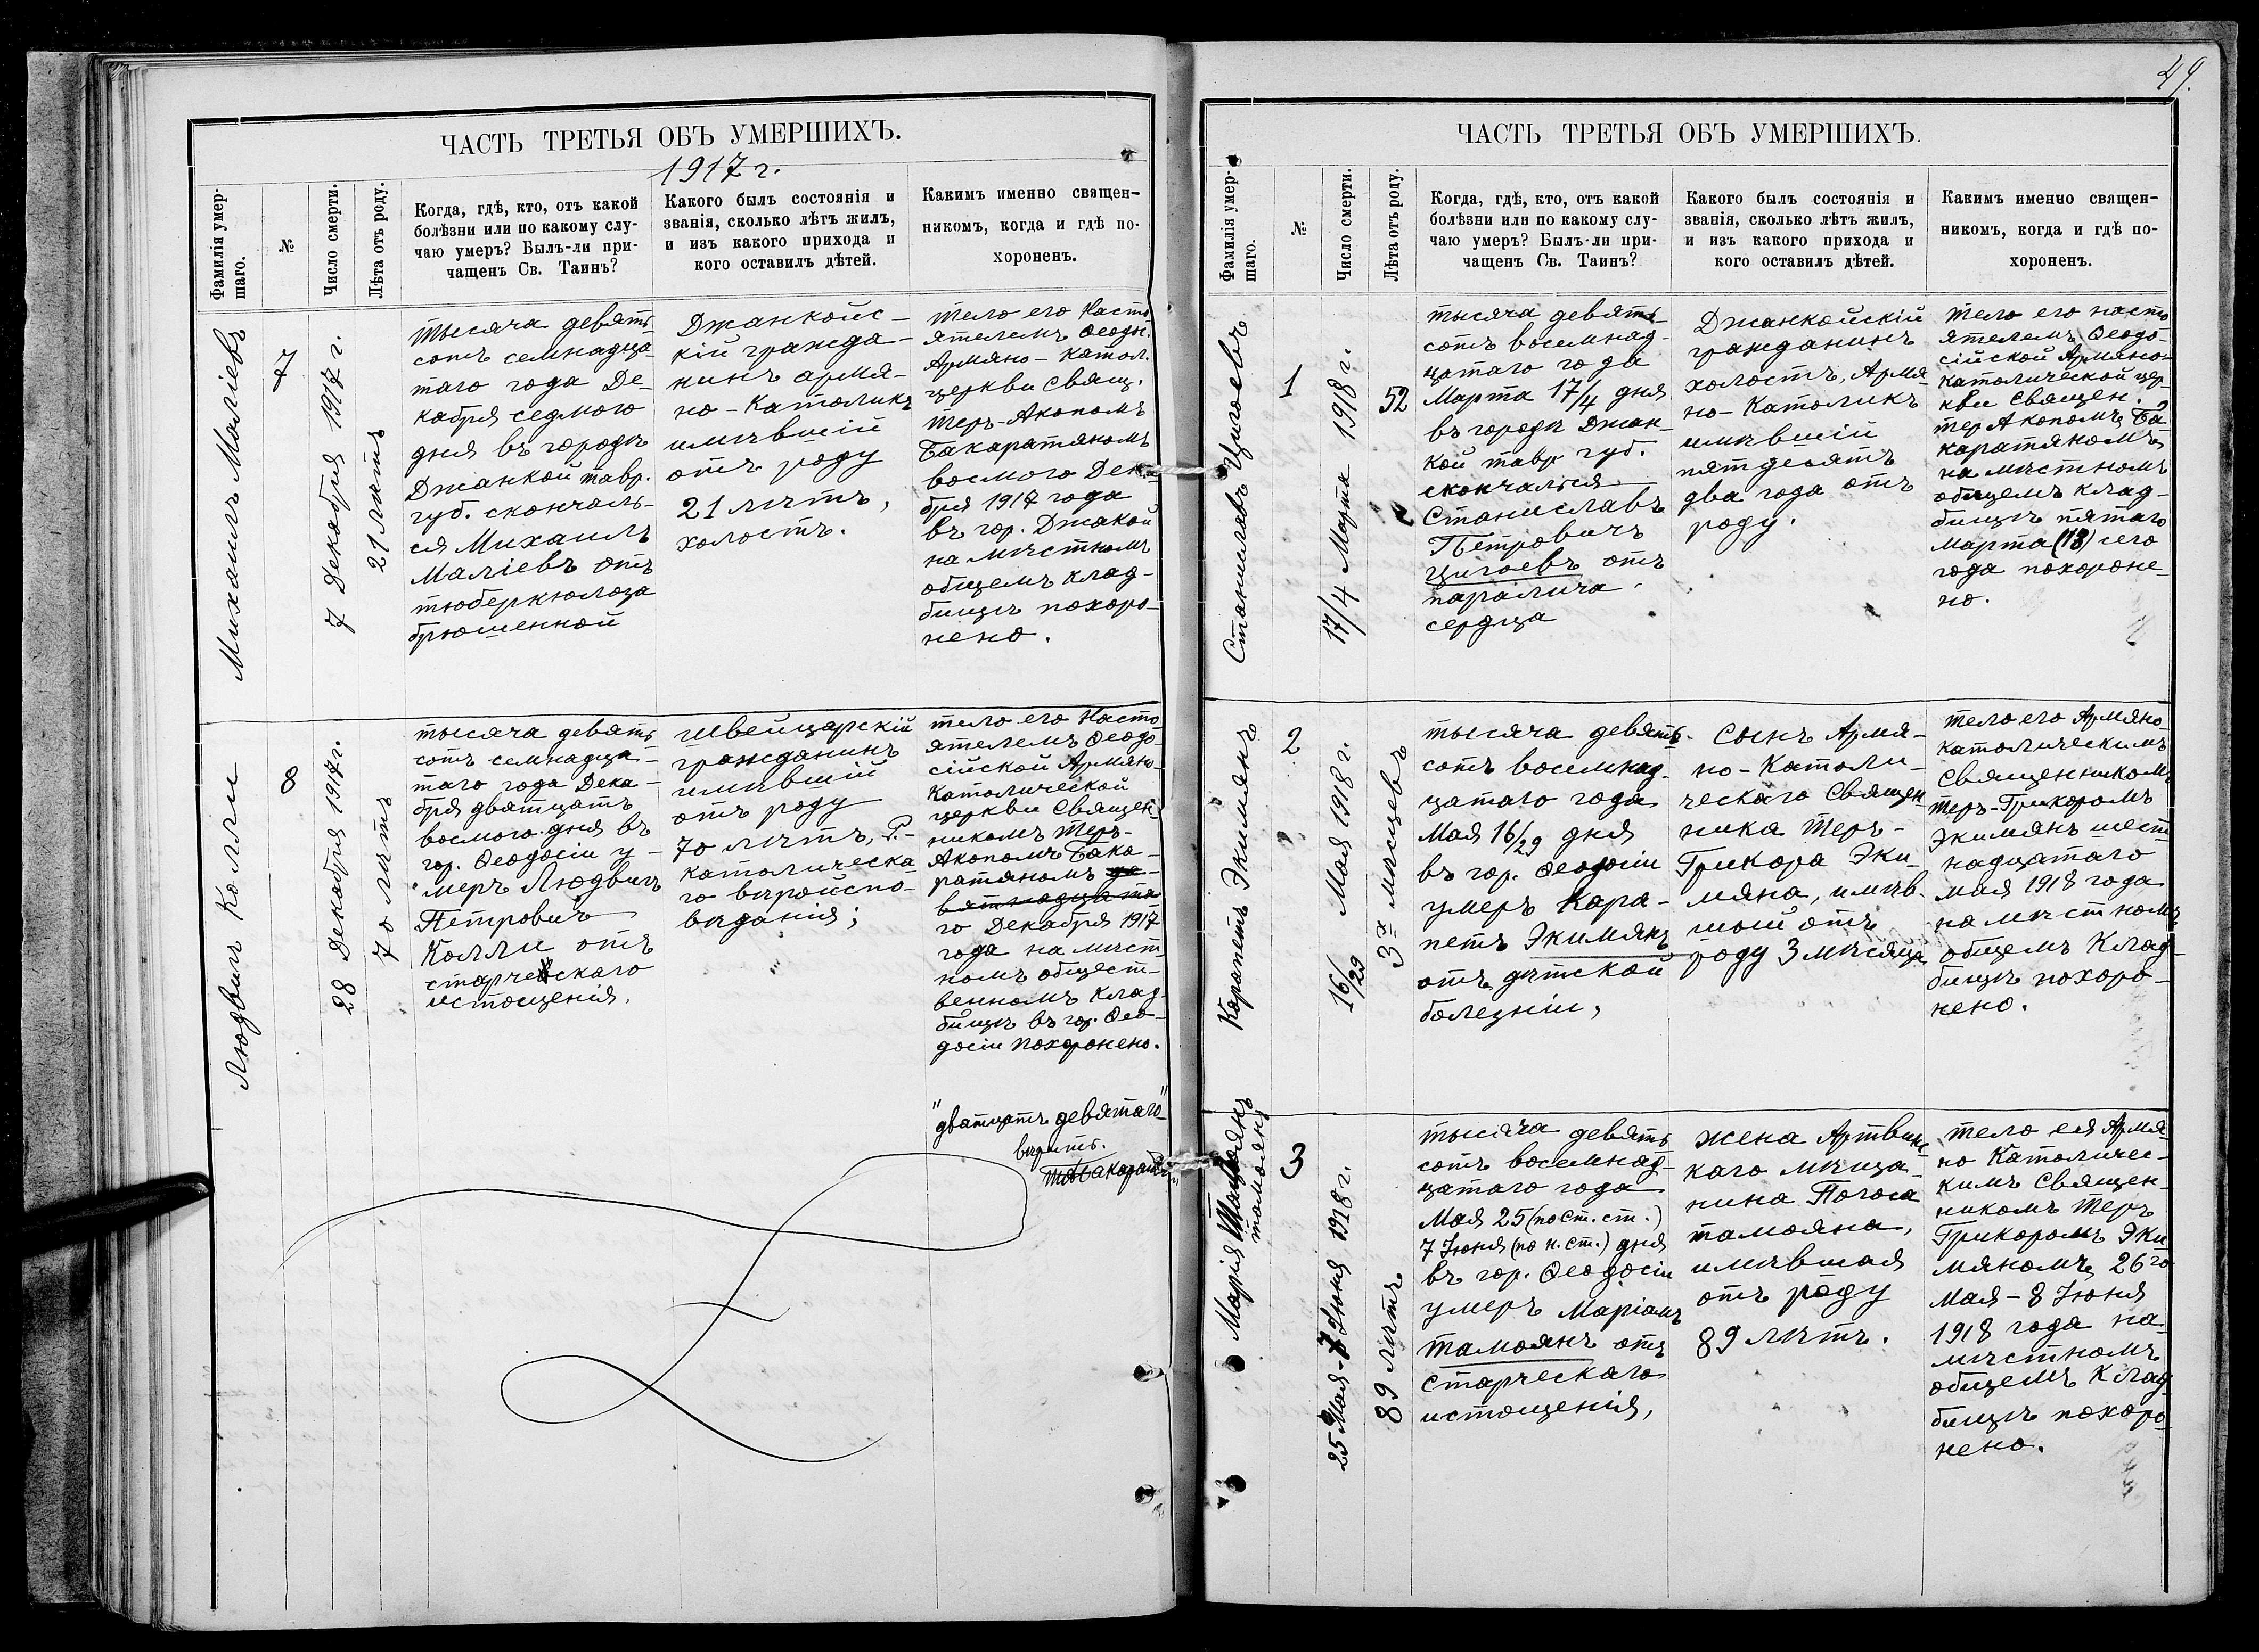 ЧАСТЬ ТРЕТЬЯ ОБЪ УМЕРШИХЪ.
1917 г.
Фамилія умер-
шаго.
№
Число смерти.
Лѣта отъ роду.
Когда, гдѣ, кто, отъ какой
болѣзни или по какому слу-
чаю умеръ? Былъ-ли при-
чащенъ Св. Таинъ?
Какого былъ состоянія и
званія, сколько лѣтъ жилъ,
и изъ какого прихода и
кого оставилъ дѣтей.
Какимъ именно священ-
никомъ, когда и гдѣ по-
хороненъ.
Михаилъ Маліевъ
7
7 Декабря 1917 г.
21 лѣтъ
тысяча девять
сотъ семнадца-
таго года Де-
кабря седмого
дня въ городѣ
Джанкой тавр.
губ. скончаль-
ся Михаилъ
Маліевъ отъ
тюберкюлоза
брюшенной
Джанкойс-
кій гражда-
нинъ армя-
но-Католикъ
имѣвшій
отъ роду
21 лѣтъ,
холостъ.
тело его Насто
ятелемъ Ѳеод.
Армяно-Катол.
церкви Свящ.
Теръ-Акопомъ
Бакаратяномъ
восмого Дека
бря 1917 года
въ гор. Джакой
на мѣстномъ
общемъ клад-
бищѣ похоро-
нено.
Людвигъ Колли
8
28 Декабря 1917 г.
70 лѣтъ
тысяча девять
сотъ семнадца-
таго года Дека-
бря дватцать
восмого дня въ
гор. Ѳеодосіи у-
меръ Людвигъ
Петровичъ
Колли отъ
старческаго
истощенія.
Швейцарскій
гражданинъ
имѣвшій
отъ роду
70 лѣтъ, Р.-
католическа
го вѣроиспо-
вѣданія;
тело его Насто
ятелемъ Ѳеодо-
сійской Армяно-
Католической
церкви Священ-
никомъ Теръ-
Акопомъ Бака-
ратяномъ
го Декабря 1917
года на мѣст-
номъ общест-
венномъ Клад-
бищѣ въ гор. Ѳео-
досіи похоронено.
"дватцать девятаго"
вѣрить.
49.
ЧАСТЬ ТРЕТЬЯ ОБЪ УМЕРШИХЪ.
Фамилія умер-
шаго.
№
Число смерти.
Лѣта отъ роду.
Когда, гдѣ, кто, отъ какой
болѣзни или по какому слу-
чаю умеръ? Былъ-ли при-
чащенъ Св. Таинъ?
Какого былъ состоянія и
званія, сколько лѣтъ жилъ,
и изъ какого прихода и
кого оставилъ дѣтей.
Какимъ именно священ-
никомъ, когда и гдѣ по-
хороненъ.
Станиславъ Цигоевъ
1
17/4 Марта 1918 г.
52
тысяча девять
сотъ восемнад-
цатаго года
Марта 17/4 дня
въ городѣ Джан-
кой тавр губ.
скончался
Станиславъ
Петровичъ
Цигоевъ отъ
паралича
сердца
Джанкойскій
гражданинъ
холостъ, Армя-
но-Католикъ
имѣвшій
пятдесятъ
два года отъ
роду.
тело его насто
ятелемъ Ѳеодо-
сійской Армяно-
католической цер-
кви Священ.
тер Акопомъ Ба-
каратяномъ
на мѣстномъ
общемъ клад-
бищѣ пятаго
Марта (18) сего
года похороне-
но.
Карапетъ Экимянъ
2
16/29 Мая 1918 г.
3х мѣсцевъ
тысяча девять-
сотъ восемнад-
цатаго года
Мая 16/29 дня
въ гор. Ѳеодосіи
умеръ Кара-
петъ Экимянъ
отъ дѣтской
болезніи,
Сынъ Армя-
но-Католи-
ческаго Священ
ника Теръ-
Грикора Эки-
мяна, имѣв-
шой отъ
роду 3 мѣсяца
тело его Армяно-
католическимъ
Священникомъ
Теръ-Грикоромъ
Экимянъ шест
надцатаго
мая 1918 года
на мѣстномъ
общемъ Клад-
бищѣ похоро-
нено.
Марія
тамоянъ
3
25 Мая-7 Іюня 1918 г.
89 лѣтъ
тысяча девять
сотъ восемнад-
цатаго года
Мая 25 (по ст. ст.)
7 Іюня (по н. ст.) дня
въ гор. Ѳеодосіи
умеръ Маріамъ
Тамоянъ отъ
старческаго
истощенія,
жена Артвинс
каго мѣща-
нина Погоса
тамояна,
имѣвшая
отъ роду
89 лѣтъ.
тело ея Армя-
но Католичес-
кимъ Священ-
никомъ Теръ
Грикоромъ Эки
мяномъ 26го
Мая-8 Іюня
1918 года на-
мѣстномъ
общемъ Клад
бищѣ похоро-
нено.